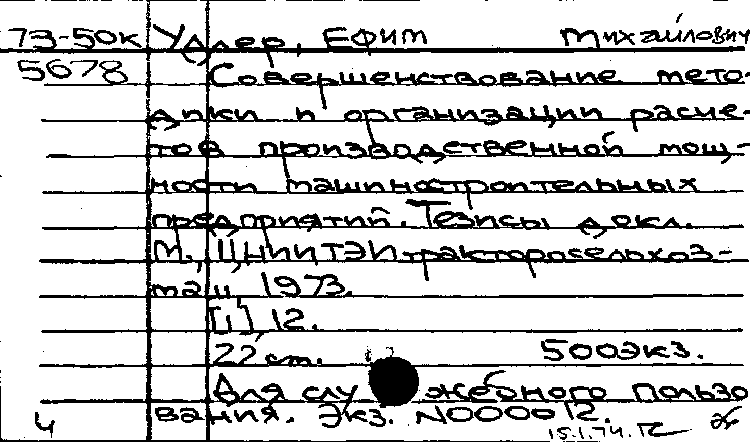 73-50к Удлер, Ефим Михайлович
5678 Совершенствование мето-
дики и организации расче-
тов производственной мощ-
ности машиностроительных
предприятий. Тезисы докл.
М., ЦНИИТЭИтракторосельхоз-
маш, 1973.
[1], 12.
22 см. 500экз.
Для служебного пользо
вания. Экз. N000012.
4 15.1.74.